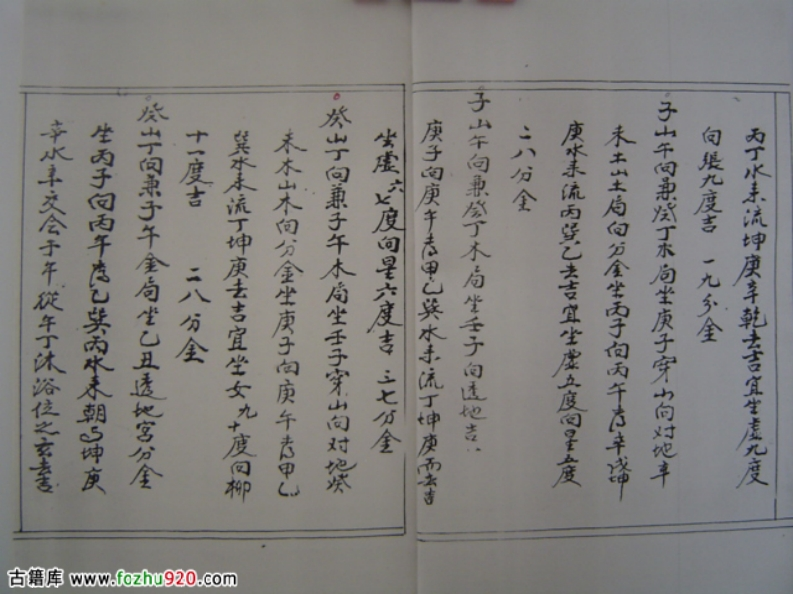 丙丁水来流坤庚辛乾去吉宜坐虚九度
向張九度吉　一九分金
子山午向兼癸丁水局坐庚子穿山向对地辛
未土山土局向分金坐丙子向丙午有辛戌坤
庚水来流丙巽乙去吉宜坐虚五度向星五度
二八分金
子山午向兼癸丁木局坐壬子向透地吉
庚子向庚午有甲乙巽水来流丁坤庚而去吉
坐虚六七度向星六度吉　三七分金
癸山丁向兼子午木局坐壬子穿山向对地癸
未木山木向分金坐庚子向庚午有甲乙
巽水来流丁坤庚去吉宜坐女九十度向柳
十一度吉　二八分金
癸山丁向兼子午金局坐乙丑透地宫分金
坐丙子向丙午有乙巽丙水来朝坤庚
辛水交会于午從午丁沐浴位之去吉
古籍库 www.fozhu920.com